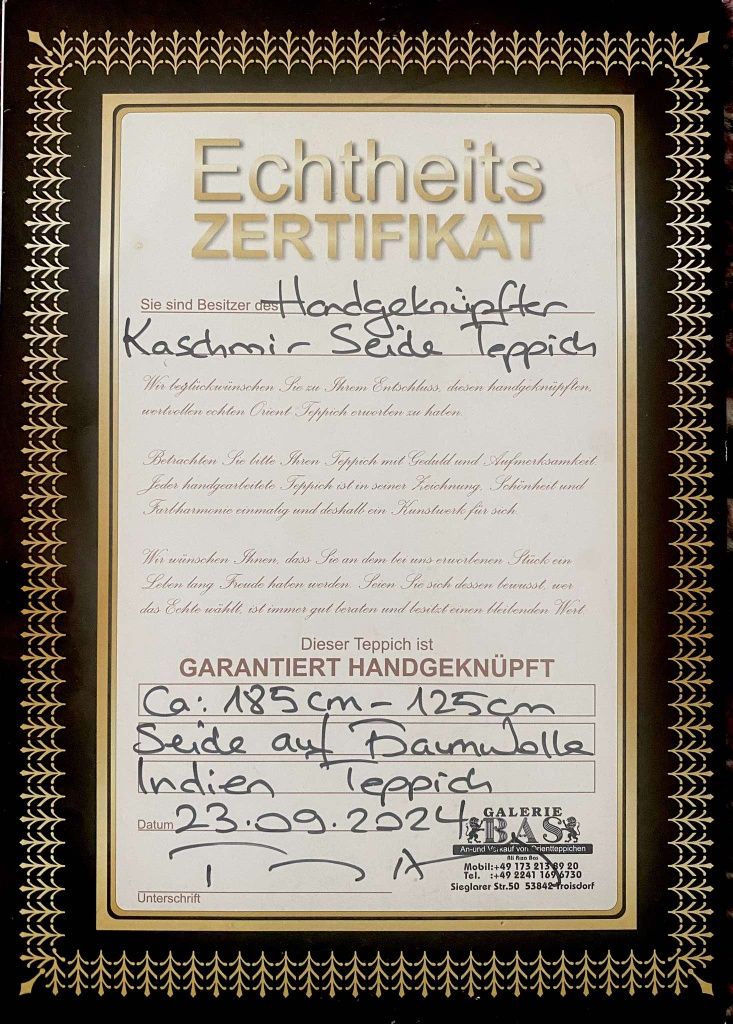 Echtheits
ZERTIFIKAT
Sie sind Besitzer des Handgeknüpfter
Kaschmir Seide Teppich
Wir beglückwünschen Sie zu Ihrem Entschluss, diesen handgeknüpften,
wertvollen echten Orient Teppich erworben zu haben.
Betrachten Sie bitte Ihren Teppich mit Geduld und Aufmerksamkeit.
Jeder handgearbeitete Teppich ist in seiner Zeichnung, Schönheit und
Farbharmonie einmalig und deshalb ein Kunstwerk für sich.
Wir wünschen Ihnen, dass Sie an dem bei uns erworbenen Stück ein
Leben lang Freude haben werden. Seien Sie sich dessen bewusst, wer
das Echte wählt, ist immer gut beraten und besitzt einen bleibenden Wert.
Dieser Teppich ist
GARANTIERT HANDGEKNÜPFT
Ca: 185cm - 125cm
Seide auf Baumwolle
Indien Teppich
Datum 23.09.2024
GALERIE
BAS
An-und Verkauf von Orientteppichen
Ali Riza Bas
Mobil:+49 173 213 89 20
Tel. :+49 2241 169 6730
Sieglarer Str.50 53842 Troisdorf
Unterschrift